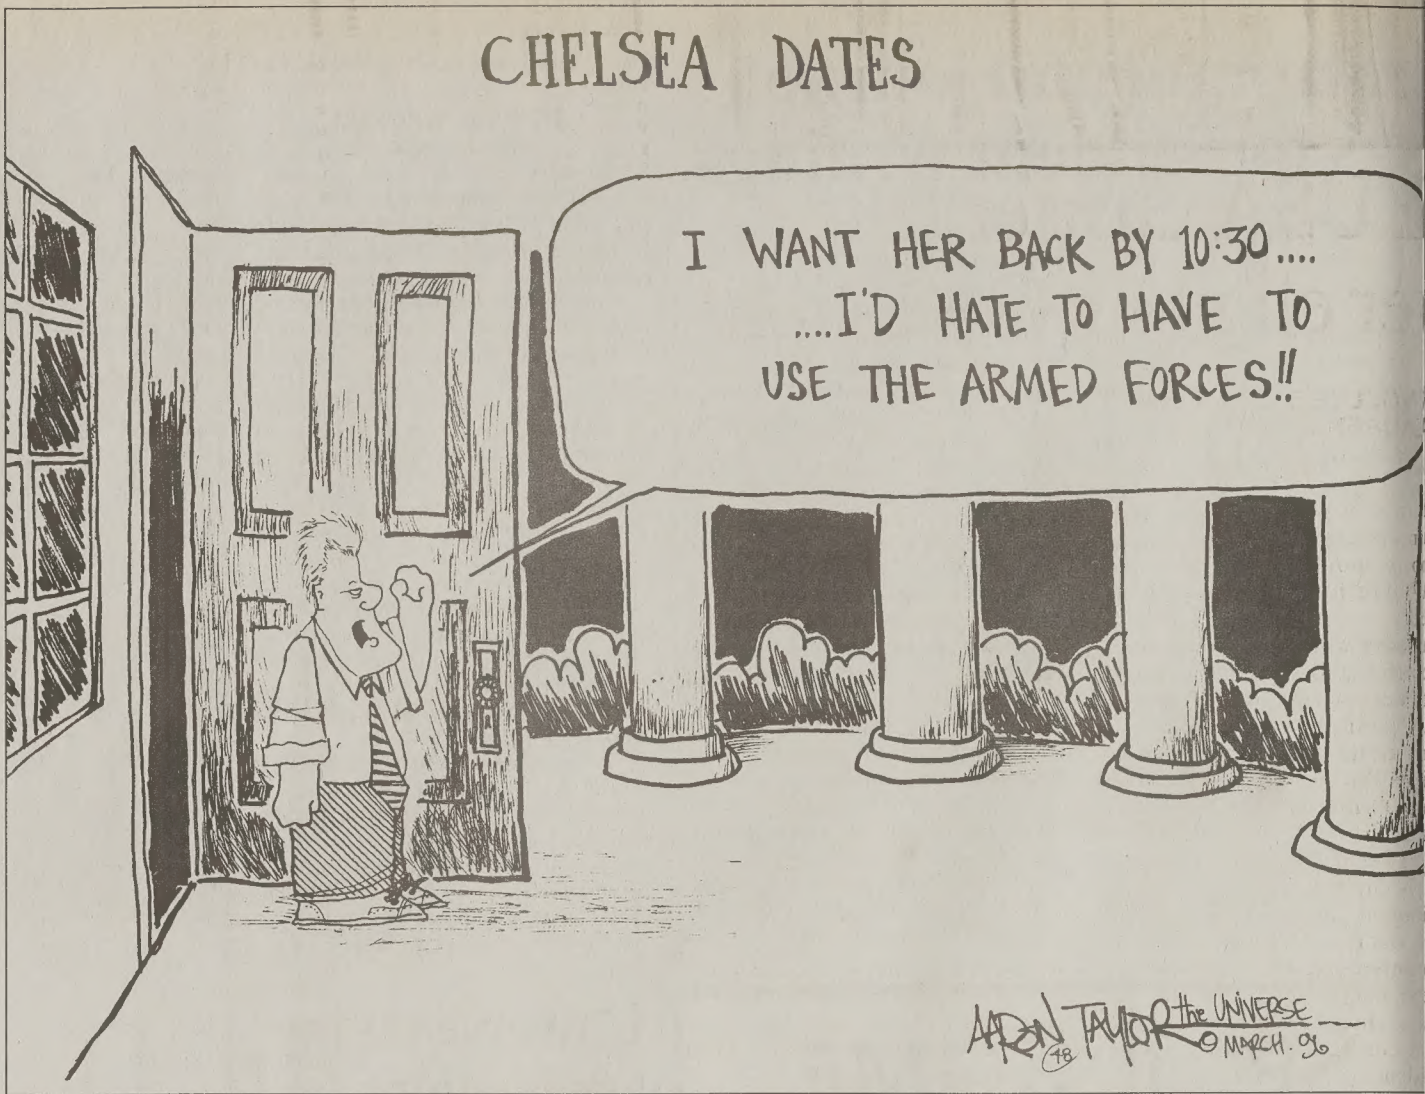 CHELSEA DATES
I WANT HER BACK BY 10:30....
....I'D HATE TO HAVE TO
USE THE ARMED FORCES!!
AARON TAYLOR the UNIVERSE
48 © MARCH. 96